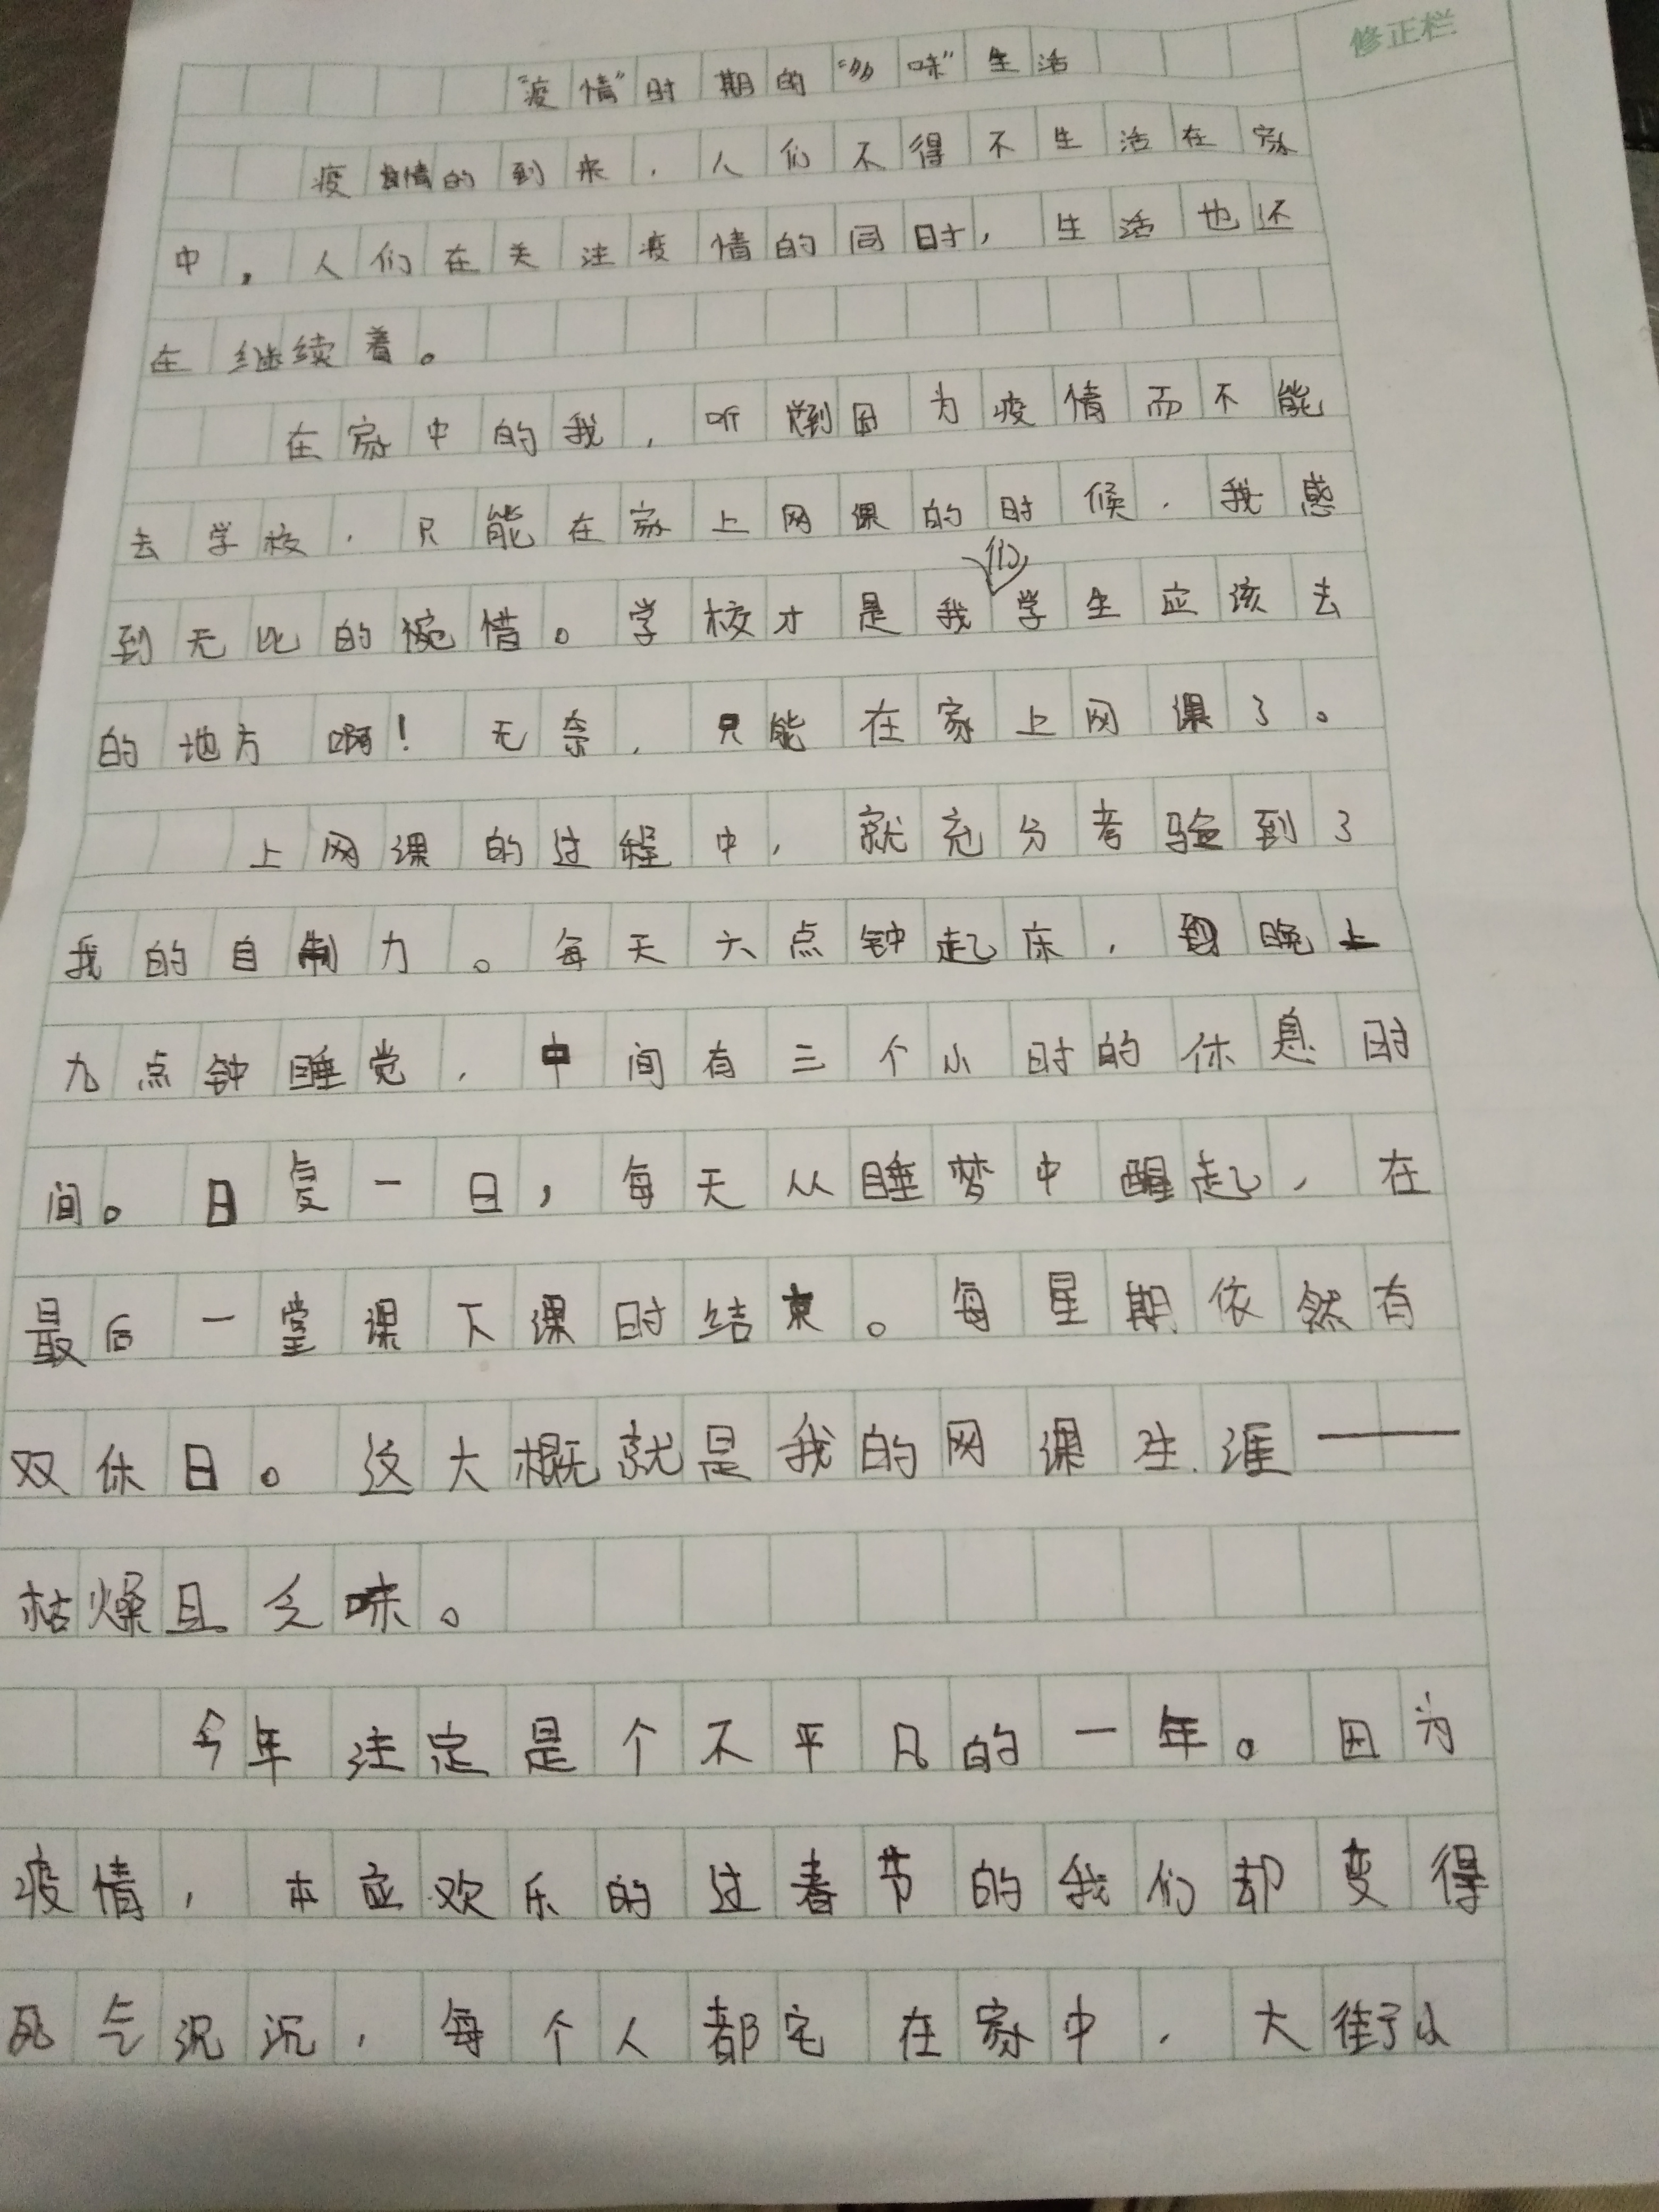 修正栏
“疫情”时期的“多味”生活
疫情的到来，人们不得不生活在家
中，人们在关注疫情的同时，生活也还
在继续着。
在家中的我，听到因为疫情而不能
去学校，只能在家上网课的时候，我感
到无比的惋惜。学校才是我们学生应该去
的地方啊！无奈，只能在家上网课了。
上网课的过程中，就充分考验到了
我的自制力。每天六点钟起床，到晚上
九点钟睡觉，中间有三个小时的休息时
间。日复一日，每天从睡梦中醒起，在
最后一堂课下课时结束。每星期依然有
双休日。这大概就是我的网课生涯——
枯燥且乏味。
今年注定是个不平凡的一年。因为
疫情，本应欢乐的过春节的我们却变得
死气沉沉，每个人都宅在家中，大街小